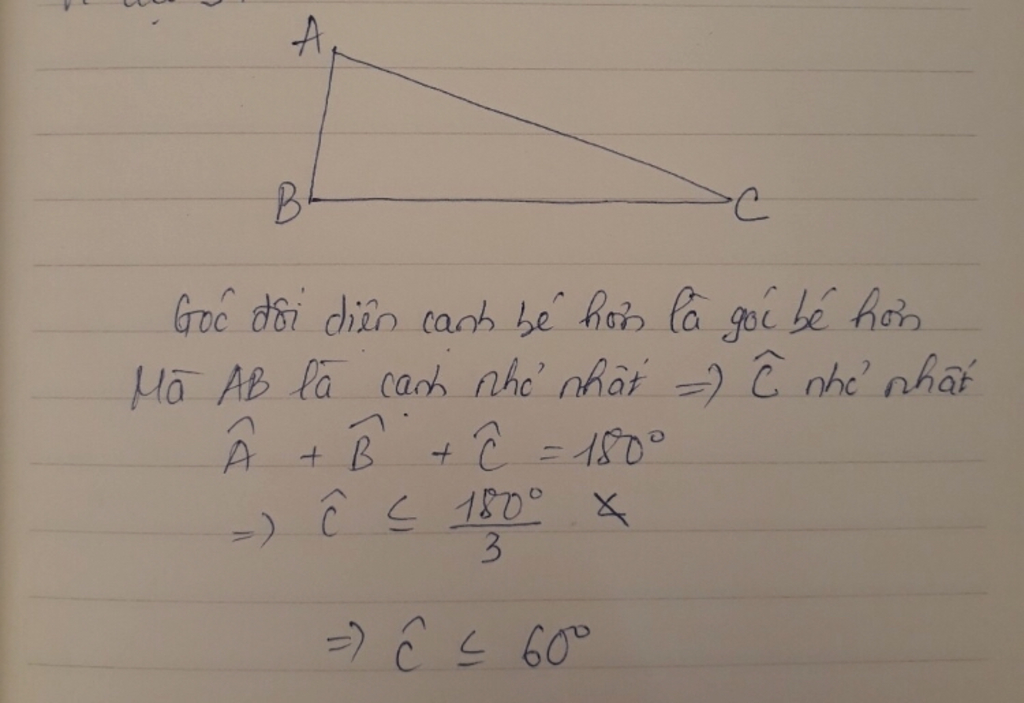 A
B
C
Góc đối diện cạnh bé hơn là góc bé hơn
Mà AB là cạnh nhỏ nhất => Ĉ nhỏ nhất
Â + B̂ + Ĉ = 180°
=> Ĉ ≤ 180°/3
=> Ĉ ≤ 60°